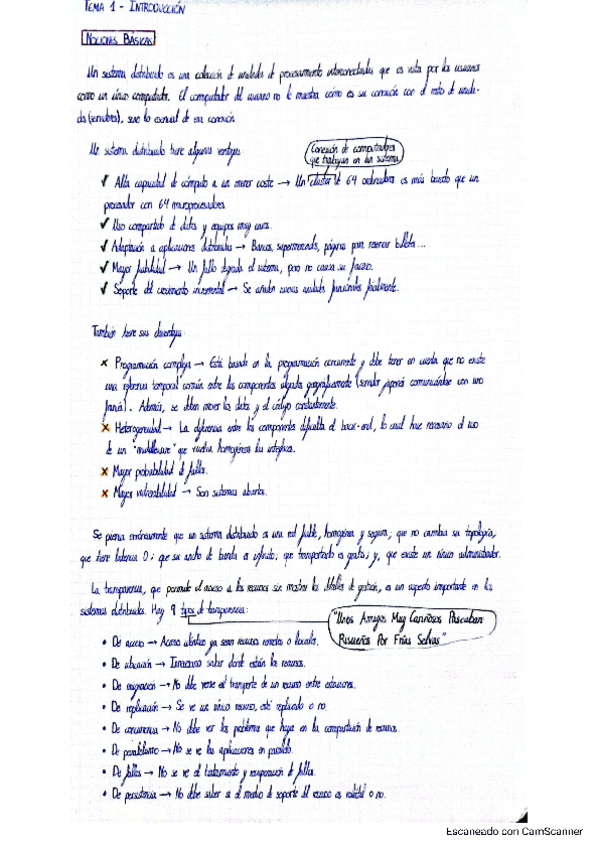 TEMA 1 - INTRODUCCIÓN
NOCIONES BÁSICAS
Un sistema distribuido es una colección de unidades de procesamiento interconectadas que es vista por los usuarios
como un único computador. El computador del usuario no le muestra cómo es su conexión con el resto de unida-
des (servidores), sino lo esencial de esa conexión.
Un sistema distribuido tiene algunas ventajas:
Conexión de computadores
que trabajan en un sistema
✓ Alta capacidad de cómputo a un menor coste → Un cluster de 64 ordenadores es más barato que un
procesador con 64 microprocesadores.
✓ Uso compartido de datos y equipos muy caros.
✓ Adaptación a aplicaciones distribuidas → Bancos, supermercados, páginas para reservar billetes...
✓ Mayor fiabilidad → Un fallo degrada el sistema, pero no causa su fracaso.
✓ Soporte del crecimiento incremental → Se añaden nuevas unidades funcionales fácilmente.
También tiene sus desventajas:
× Programación compleja → Está basada en la programación concurrente y debe tener en cuenta que no existe
una referencia temporal común entre los componentes alejados geográficamente (servidor japonés comunicándose con uno
francés). Además, se deben mover los datos y el código constantemente.
× Heterogeneidad → La diferencia entre los componentes dificulta el back-end, lo cual hace necesario el uso
de un "middleware" que vuelva homogéneas las interfaces.
× Mayor probabilidad de fallos.
× Mayor vulnerabilidad → Son sistemas abiertos.
Se piensa erróneamente que un sistema distribuido es una red fiable, homogénea y segura; que no cambia su topología,
que tiene latencia 0; que su ancho de banda es infinito; que transportado es gratis; y, que existe un único administrador.
La transparencia, que permite el acceso a los recursos sin mostrar los detalles de gestión, es un aspecto importante en los
sistemas distribuidos. Hay 9 tipos de transparencia:
"Unos Amigos Muy Cariñosos Paseaban
Risueños Por Frías Selvas"
• De acceso → Acceso idéntico ya sean recursos remotos o locales.
• De ubicación → Innecesario saber donde están los recursos.
• De migración → No debe verse el transporte de un recurso entre estaciones.
• De replicación → Se ve un único recurso, esté replicado o no.
• De concurrencia → No debe ver los problemas que haya en la compartición de recursos.
• De paralelismo → No se ve las aplicaciones en paralelo.
• De fallos → No se ve el tratamiento y recuperación de fallos.
• De persistencia → No debe saber si el medio de soporte del recurso es volátil o no.
Escaneado con CamScanner